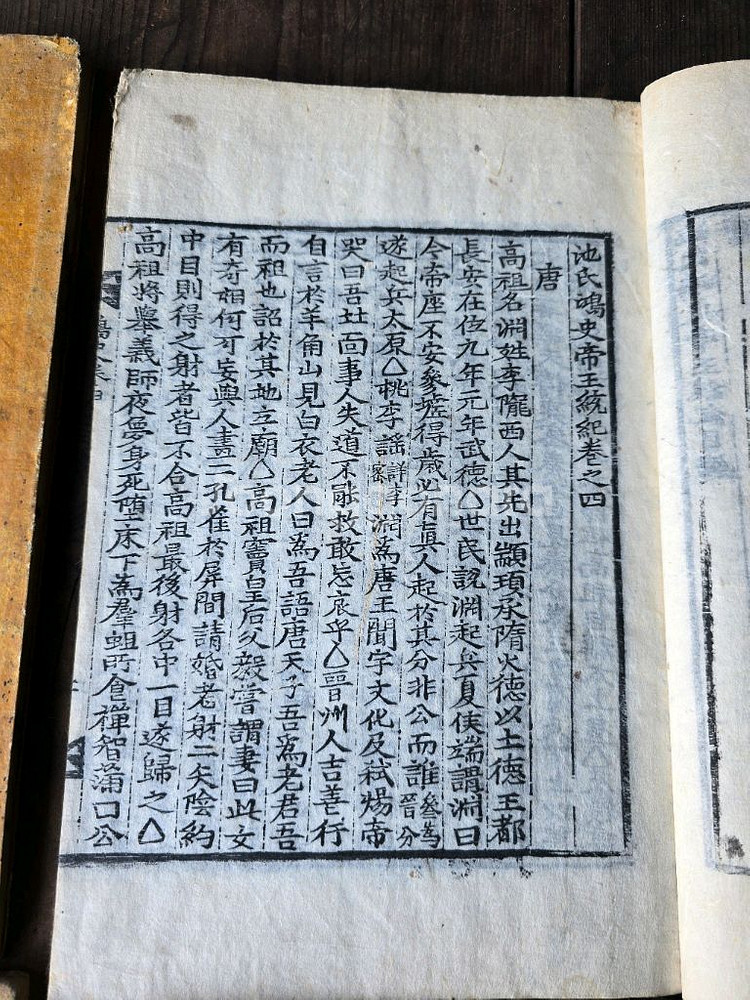 池氏鴻史帝王統紀卷之四
唐
高祖名淵姓李隴西人其先出顓頊承隋火德以土德王都
長安在位九年元年武德△世民說淵起兵夏侯端謂淵曰
今帝座不安參墟得歲必有眞人起於其分非公而誰參爲晉分
遂起兵太原△桃李謠詳李密淵爲唐王聞宇文化及弑煬帝
哭曰吾北面事人失道不能救敢忘哀乎△晉州人吉善行
自言於羊角山見白衣老人曰爲吾語唐天子吾爲老君吾
而祖也詔於其地立廟△高祖竇皇后父毅嘗謂妻曰此女
有奇相何可妄與人畫二孔雀於屏間請婚者射二矢陰約
中目則得之射者皆不合高祖最後射各中一目遂歸之△
高祖將擧義師夜夢身死墮床下爲羣蛆所食禪智滿口公
鴻史卷四